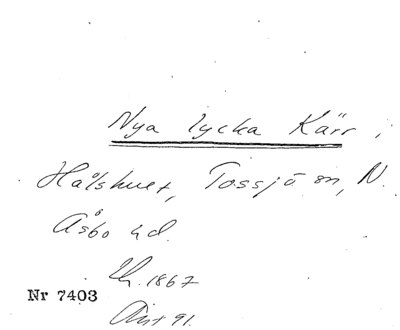 Nya lycka Kärr i
Hålshult, Tossjö sn, N.
Åsbo hd.
1867
Nr 7403
91.